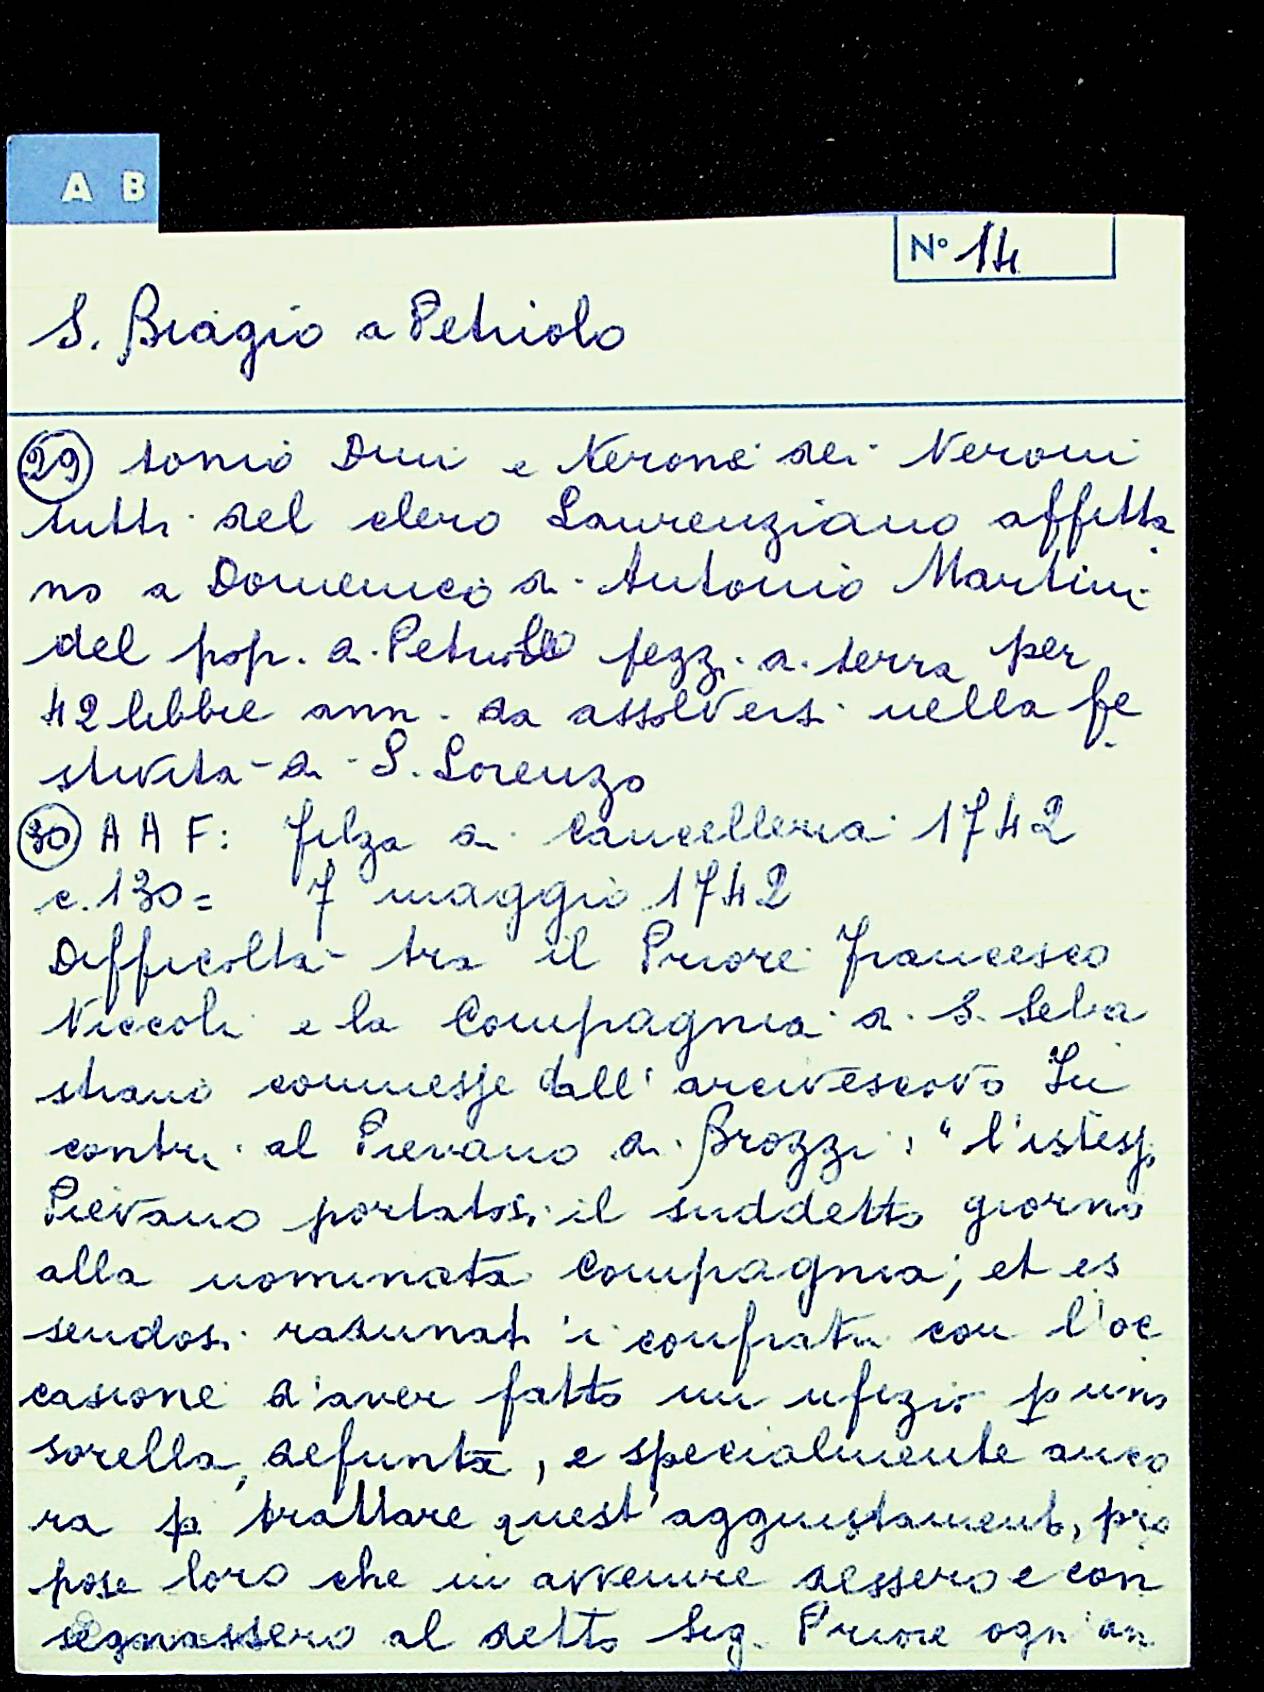 A B
N° 14
S. Biagio a Petriolo
29 tonio Dini e Nerone dei Neroni
tutti del clero Laurenziano affitta
no a Domenico di Antonio Martini
del pop. di Petriolo pezzi di terra per
42 libbre ann. da assolversi nella fe
stività di S. Lorenzo
30 A A F: filza di Cancelleria 1742
c. 130 = 7 maggio 1742
Difficoltà tra il Priore Francesco
Niccoli e la Compagnia di S. Seba
stiano commesse dall'arcivescovo In
contri al Pievano di Brozzi: "l'istess.
Pievano portatosi il suddetto giorno
alla nominata Compagnia; et es
sendosi radunati i confratri con l'oc
casione d'aver fatto un ufizio p una
sorella defunta, e specialmente anco
ra p trattare quest'aggiustamento, pro
pose loro che in avvenire dessero e con
segnassero al detto Sig. Priore ogn'an